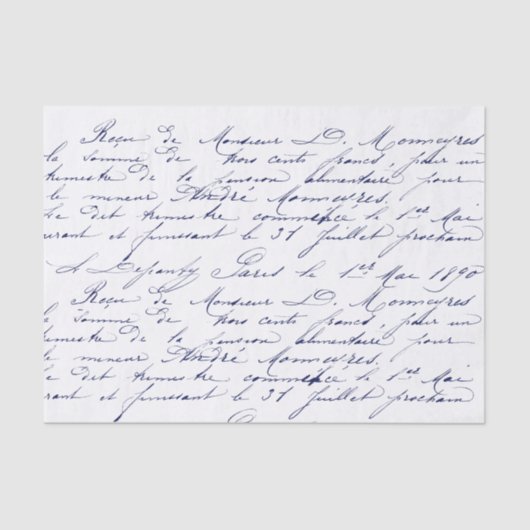 Reçu de Monsieur D. Monneyres
la Somme de trois cents francs, pour un
trimestre de la pension alimentaire pour
le mineur André Monneyres.
Le dit trimestre commence le 1er Mai
urant et finissant le 31 Juillet prochain
Paris le 1er Mai 1890
Reçu de Monsieur D. Monneyres
la Somme de trois cents francs, pour un
trimestre de la pension alimentaire pour
le mineur André Monneyres.
Le dit trimestre commence le 1er Mai
urant et finissant le 31 Juillet prochain